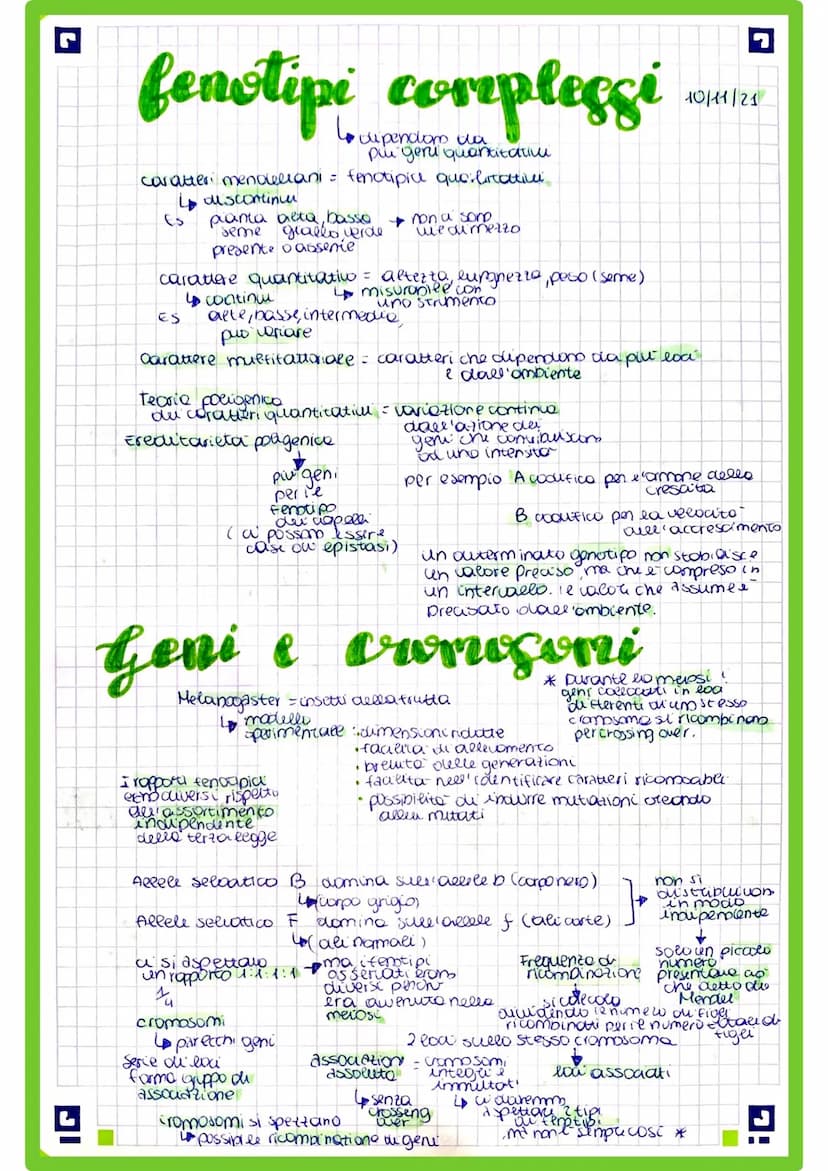 fenotipi complessi 10/11/21
↳ dipendono da
più geni quantitativi
caratteri mendeliani = fenotipici qualitativi
↳ discontinui
Es pianta alta, bassa → non ci sono
seme giallo verde vie di mezzo
presente o assente
carattere quantitativo = altezza, lunghezza, peso (seme)
↳ continui ↳ misurabile con
uno strumento
ES alte, basse, intermedie,
può variare
carattere multifattoriale = caratteri che dipendono da più loci
e dall'ambiente
Teoria poligenica
dei caratteri quantitativi = variazione continua
dall'azione dei
geni che contribuiscono
ad una intensità
Ereditarietà poligenica
più geni
per il
fenotipo
dei capelli
(ci possono essere
casi di epistasi)
per esempio A codifica per l'ormone della
crescita
B codifica per la velocità
dell'accrescimento
un determinato genotipo non stabilisce
un valore preciso, ma che è compreso in
un intervallo. Il valore che assume è
precisato dall'ambiente.
Geni e cromosomi
* Durante la meiosi i
geni collocati in loci
differenti di uno stesso
cromosoma si ricombinano
per crossing over.
Melanogaster = insetti della frutta
↳ modelli
sperimentale : • dimensioni ridotte
• facilità di allevamento
• brevità delle generazioni
• facilità nell'identificare caratteri
• possibilità di indurre mutazioni creando
alleli mutati
I rapporti fenotipici
erano diversi rispetto
all'assortimento
indipendente
della terza legge
Allele selvatico B domina sull'allele b (corpo nero)
↳ (corpo grigio)
Allele selvatico F domina sull'allele f (ali corte)
↳ (ali normali)
non si
distribuivano
in modo
indipendente
solo un piccolo
numero
presentano ciò
che detto da
Mendel
ci si aspettava
un rapporto 1:1:1:1
1/4
→ ma i fenotipi
osservati erano
diversi perché
era avvenuta nella
meiosi
Frequenza di
ricombinazione
si calcola
dividendo il numero di figli
ricombinati per il numero totale di
figli
cromosomi
↳ parecchi geni
serie di loci
forma gruppo di
associazione
2 loci sullo stesso cromosoma
loci associati
associazione = cromosomi
assoluta integri e
immutati
↳ senza
crossing
over
↳ ci daremmo
aspettare 2 tipi
di fenotipi
ma non è sempre così *
cromosomi si spezzano
↳ possibile ricombinazione di geni